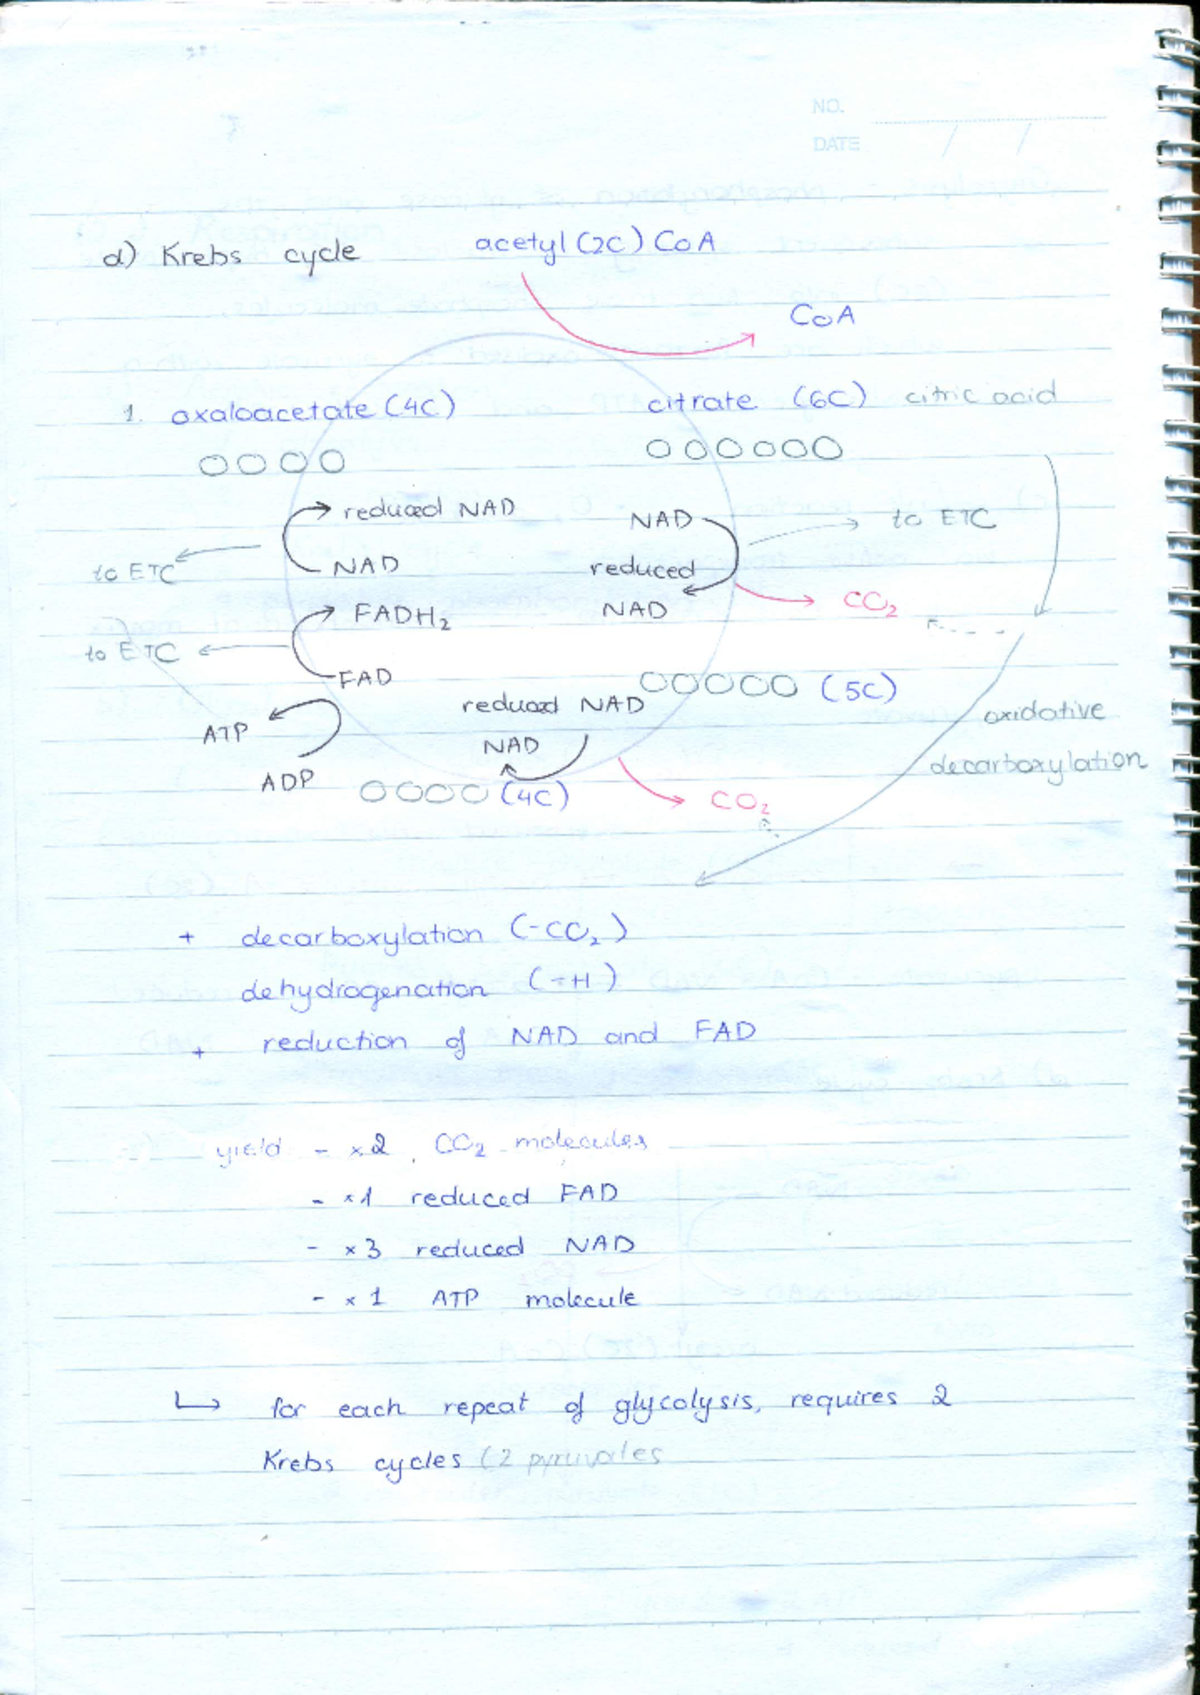 NO.
DATE / /
d) Krebs cycle
acetyl (2C) CoA
CoA
1. oxaloacetate (4C)
citrate (6C) citric acid
reduced NAD
NAD
to ETC
NAD
reduced
NAD
to ETC
CO2
FADH2
FAD
to ETC
(5C)
reduced NAD
NAD
ATP
ADP
(4C)
CO2
oxidative
decarboxylation
+ decarboxylation (-CO2)
dehydrogenation (-H)
+ reduction of NAD and FAD
yield - x2 CO2 molecules
- x1 reduced FAD
- x3 reduced NAD
- x1 ATP molecule
↳ for each repeat of glycolysis, requires 2
Krebs cycles (2 pyruvates